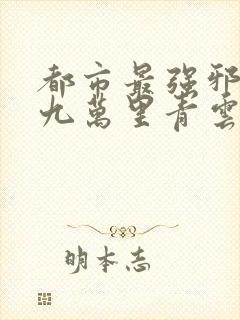 都市最强邪
九萬里青雲
明本志